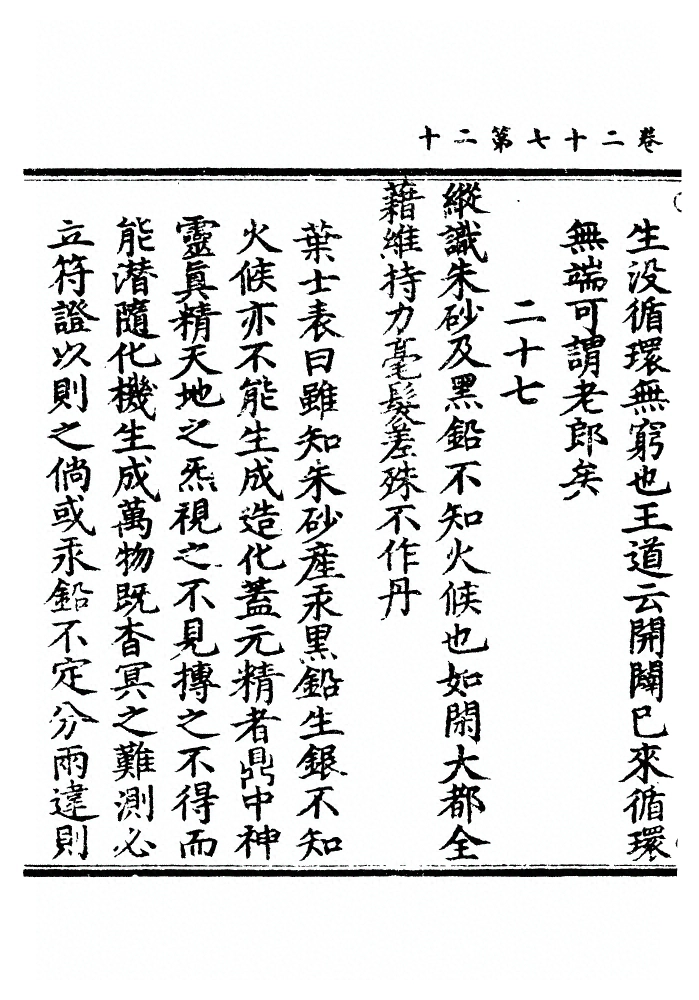 卷二十七第二十
生没循環無窮也王道云開闢已來循環
無端可謂老郎矣
二十七
縱識朱砂及黑鉛不知火候也如閑大都全
藉維持力毫髮差殊不作丹
葉士表曰雖知朱砂產汞黑鉛生銀不知
火候亦不能生成造化蓋元精者鼎中神
靈眞精天地之炁視之不見摶之不得而
能潛隨化機生成萬物既杳冥之難測必
立符證以則之倘或汞鉛不定分兩違則